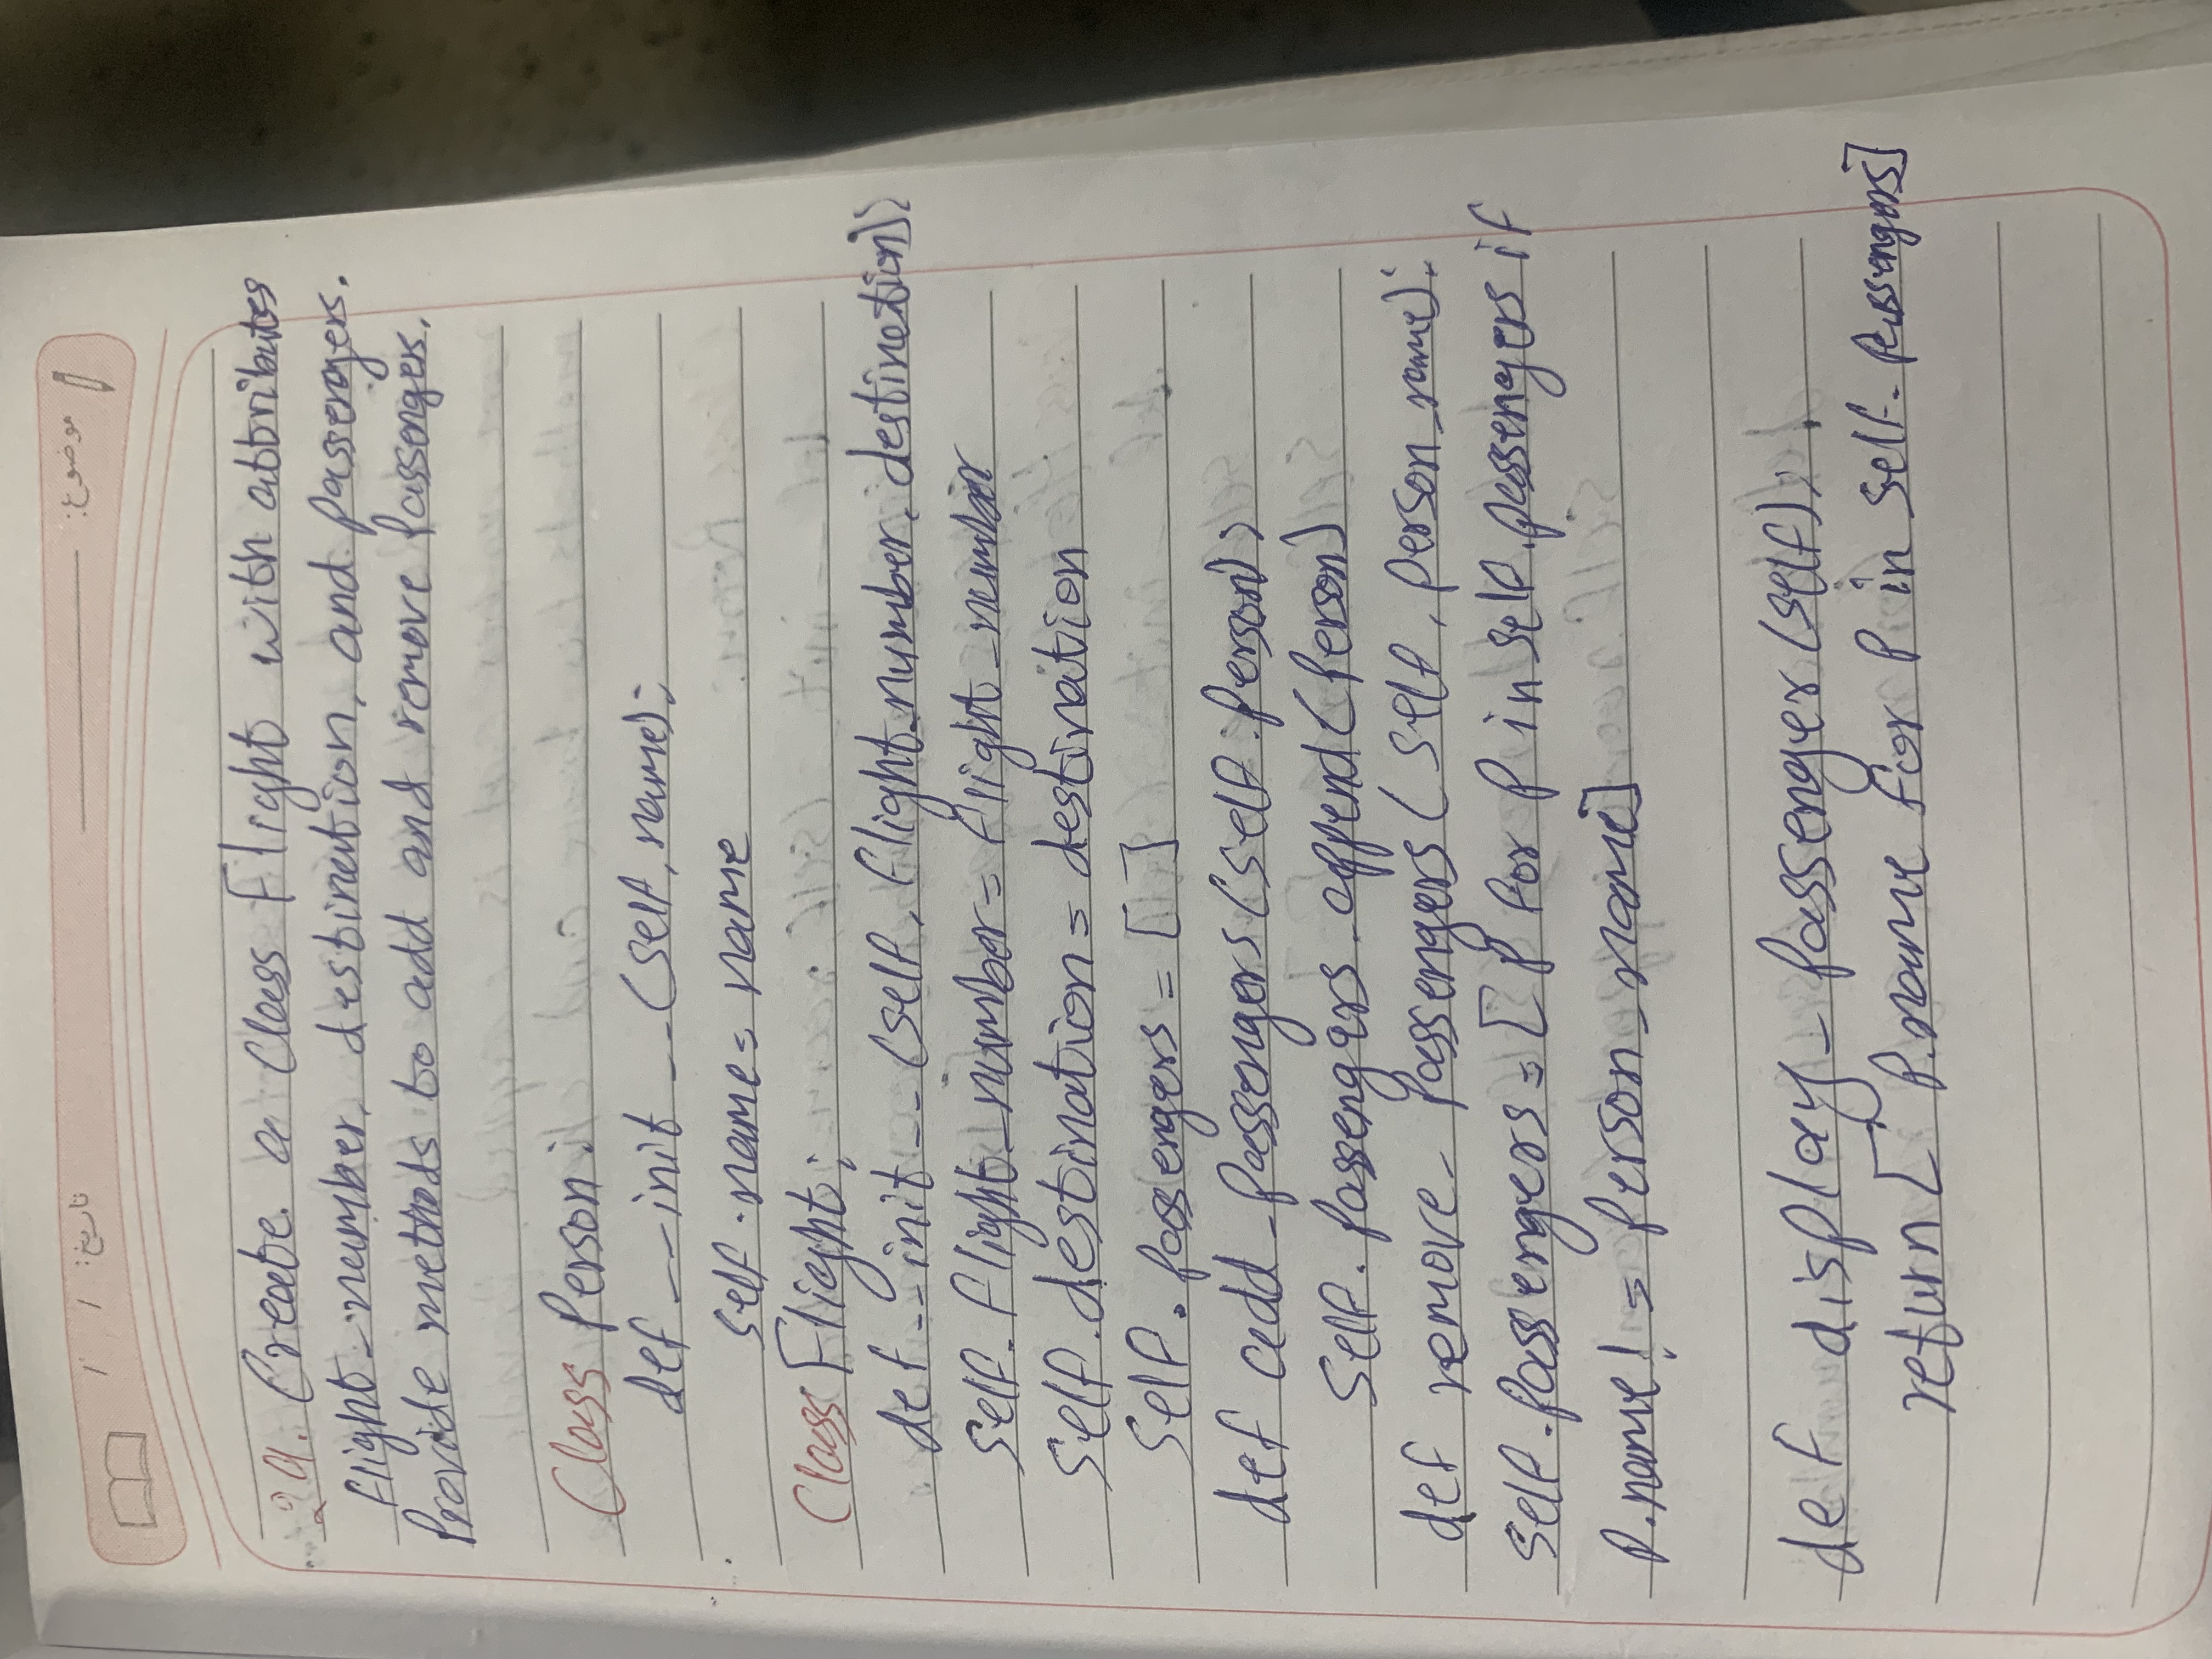 موضوع:
تاریخ: / /
29. Create a Class Flight with attributes
flight_number, destination, and passengers.
Provide methods to add and remove Passengers.
Class Person:
def __init__(self, name):
self.name= name
Class Flight:
def __init__(self, flight_number, destination):
self.flight_number= flight_number
self.destination= destination
self.passengers = [ ]
def add_passengers(self.person):
self.passengers.append(person)
def remove_passengers(self, person_name):
self.passengers= [P for P in self.passengers if
P.name!= person_name]
def display_passenger(self):
return [ P.name for P in self.passengers]